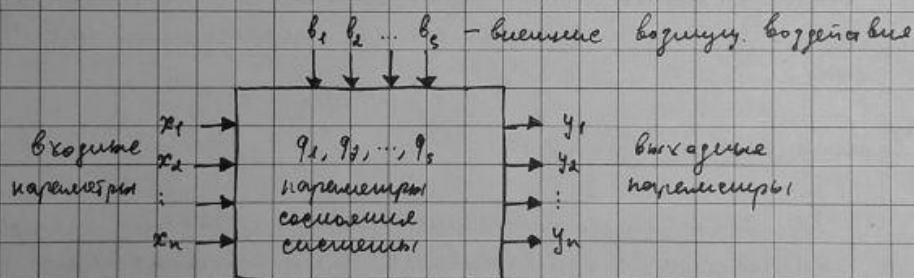 b₁ b₂ ... b₅ – внешние возмущ. воздействия
x₁
x₂
⋮
xₙ
входные
параметры
q₁, q₂, ..., q₅
параметры
состояния
системы
y₁
y₂
⋮
yₙ
выходные
параметры